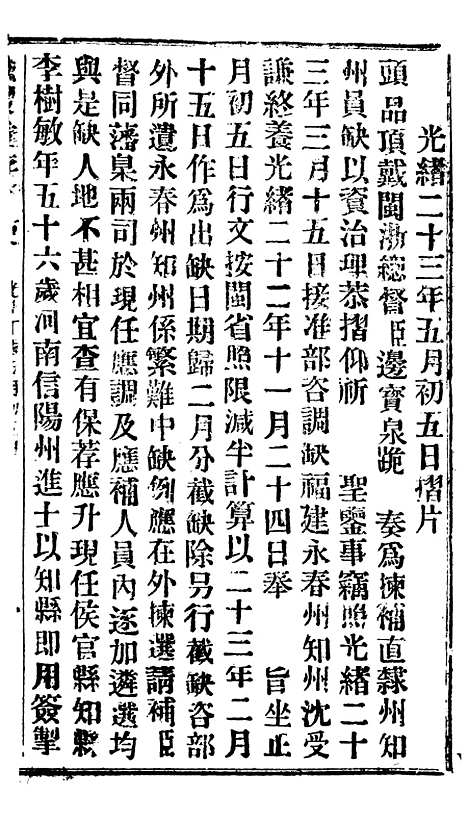 光緒二十三年五月初五日摺片
頭品頂戴閩浙總督臣邊寶泉跪　奏爲揀補直隸州知
州員缺以資治理恭摺仰祈　聖鑒事竊照光緒二十
三年三月十五日接准部咨調缺福建永春州知州沈受
謙終養光緒二十二年十一月二十四日奉　旨坐止
月初五日行文按閩省照限減半計算以二十三年二月
十五日作爲出缺日期歸二月分截缺除另行截缺咨部
外所遺永春州知州係繁難中缺例應在外揀選請補臣
督同藩臬兩司於現任應調及應補人員內逐加遴選均
與是缺人地不甚相宜查有保荐應升現任侯官縣知縣
李樹敏年五十六歲河南信陽州進士以知縣即用簽掣